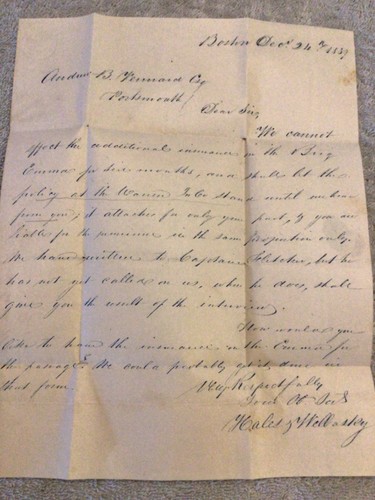 Boston Decr 24th 1839
Andrew B. Pennard Esq
Portsmouth
Dear Sir,
We cannot
effect the additional insurance in the Brig
Emma for six months, and shall let the
policy at the Warren Ins Co stand until we hear
from you; it attaches for only your part, & you are
liable for the insurance in the same proportion only.
We have written to Captain Fletcher, but he
has not yet called on us, when he does, shall
give you the result of the interview.
How would you
like to have the insurance on the Emma for
the passage. We could probably get it done in
that form.
Very Respectfully
Your Ob Servts
Hales &